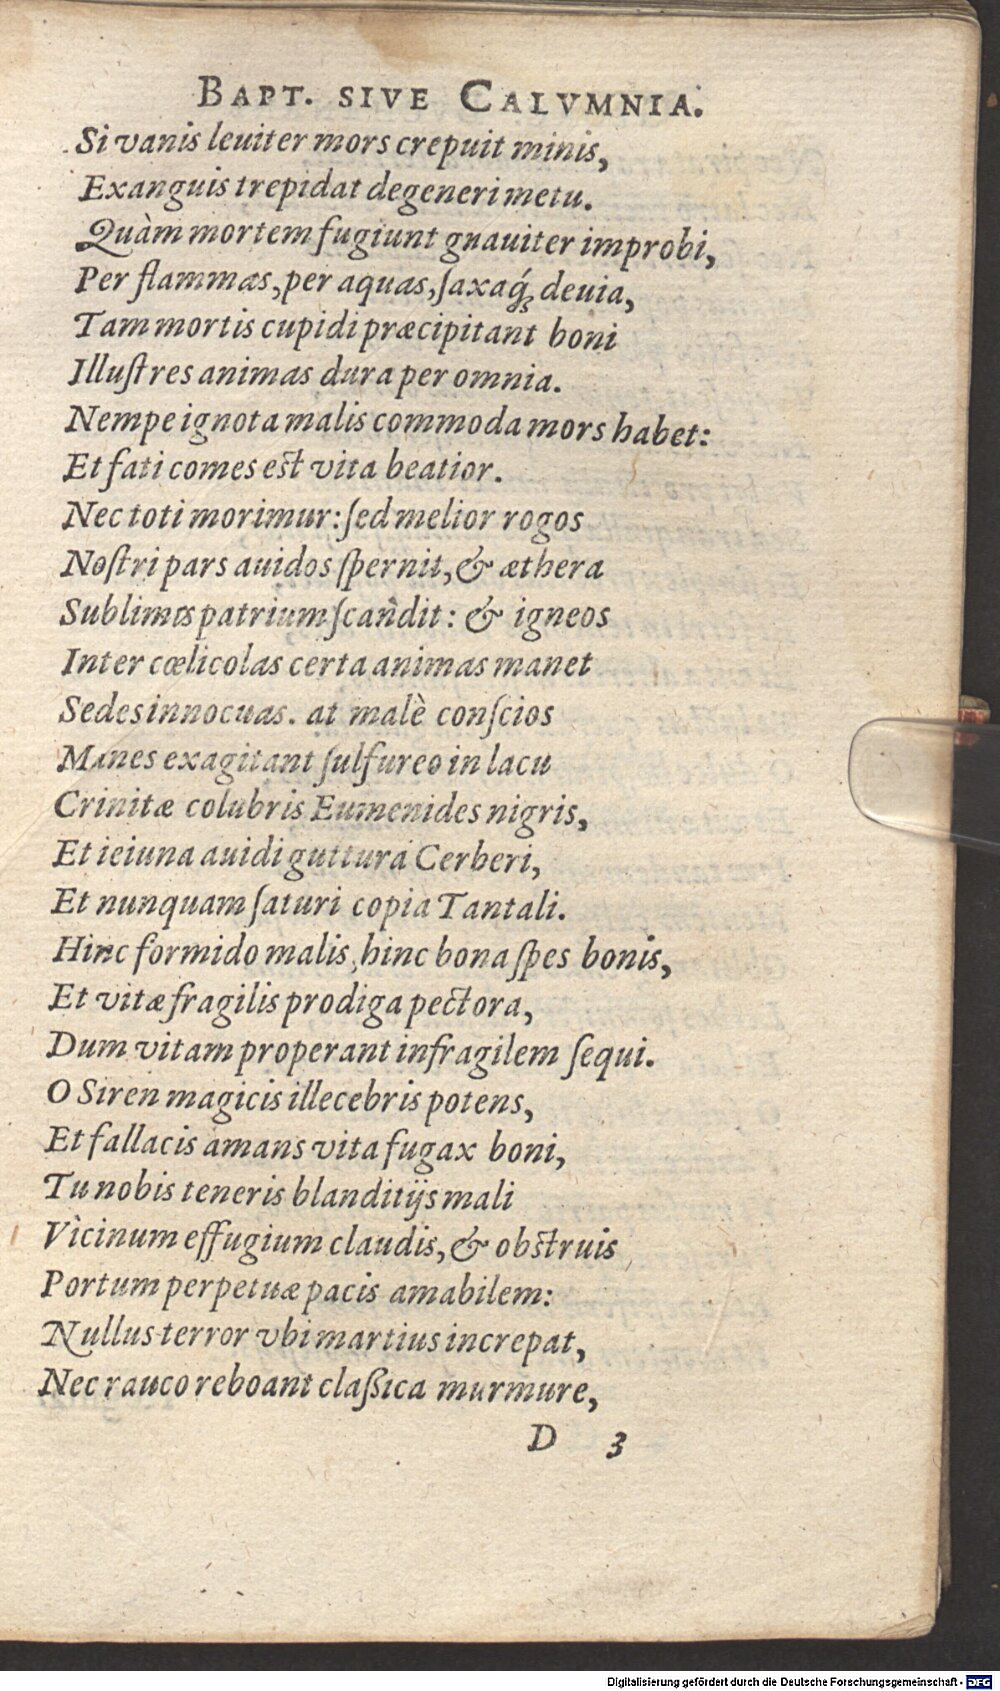 BAPT. SIVE CALVMNIA.
Si vanis leuiter mors crepuit minis,
Exanguis trepidat degeneri metu.
Quàm mortem fugiunt gnauiter improbi,
Per flammas, per aquas, ſaxaq́ꝫ deuia,
Tam mortis cupidi præcipitant boni
Illuſtres animas dura per omnia.
Nempe ignota malis commoda mors habet:
Et fati comes est vita beatior.
Nec toti morimur: ſed melior rogos
Noſtri pars auidos ſpernit, & æthera
Sublimis patrium ſcandit: & igneos
Inter cœlicolas certa animas manet
Sedes innocuas. at malè conſcios
Manes exagitant ſulfureo in lacu
Crinitæ colubris Eumenides nigris,
Et ieiuna auidi guttura Cerberi,
Et nunquam ſaturi copia Tantali.
Hinc formido malis, hinc bona ſpes bonis,
Et vitæ fragilis prodiga pectora,
Dum vitam properant infragilem ſequi.
O Siren magicis illecebris potens,
Et fallacis amans vita fugax boni,
Tu nobis teneris blanditijs mali
Vicinum effugium claudis, & obstruis
Portum perpetuæ pacis amabilem:
Nullus terror vbi martius increpat,
Nec rauco reboant claßica murmure,
D 3
Digitalisierung gefördert durch die Deutsche Forschungsgemeinschaft - DFG